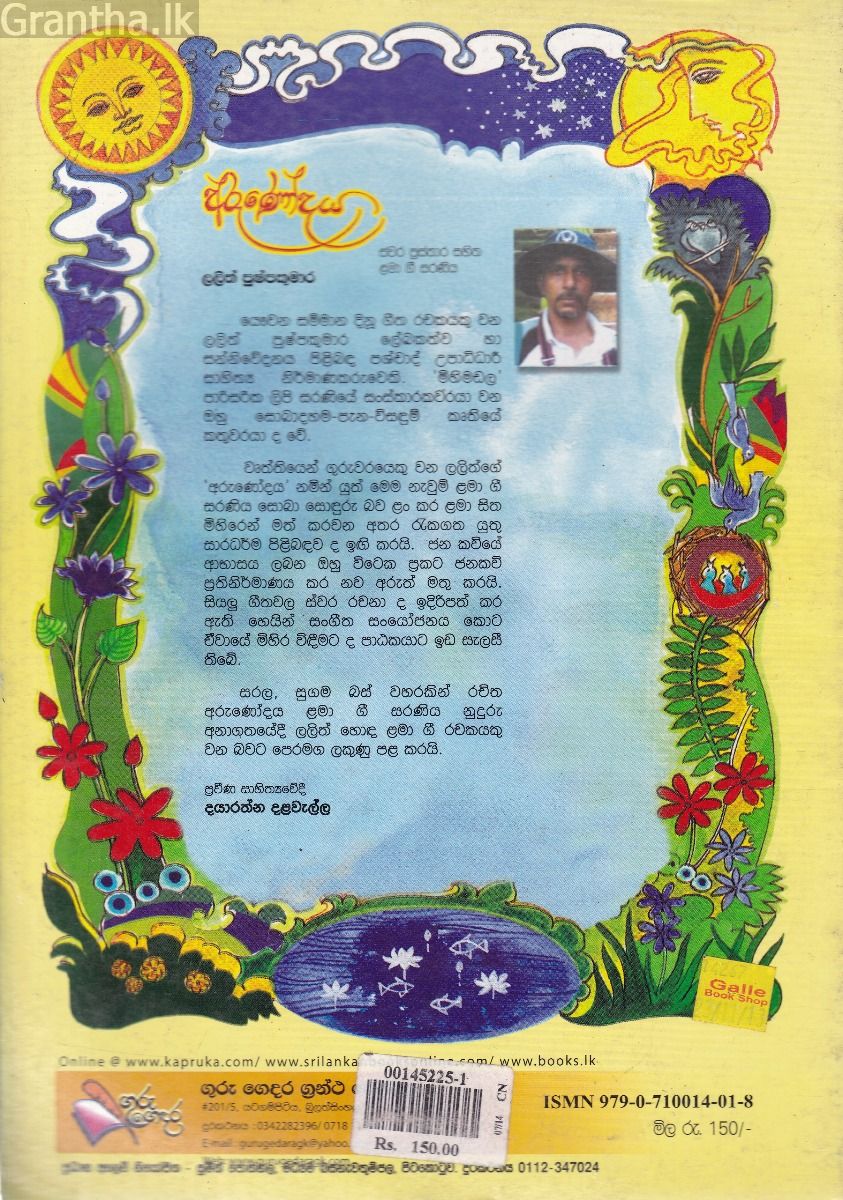 Grantha.lk
අරුණෝදය
ස්වර ප්‍රස්තාර සහිත
ළමා ගී සරණිය
ලලිත් පුෂ්පකුමාර
යෞවන සම්මාන දිනූ ගීත රචකයකු වන
ලලිත් පුෂ්පකුමාර ලේඛකත්ව හා
සන්නිවේදනය පිළිබඳ පශ්චාද් උපාධිධාරී
සාහිත්‍ය නිර්මාණකරුවෙකි. 'මිහිමඬල'
පාරිසරික ලිපි සරණියේ සංස්කාරකවරයා වන
ඔහු සොබාදහම-පැන-විසඳුම් කෘතියේ
කතුවරයා ද වේ.
වෘත්තියෙන් ගුරුවරයෙකු වන ලලිත්ගේ
'අරුණෝදය' නමින් යුත් මෙම නැවුම් ළමා ගී
සරණිය සොබා සොඳුරු බව ළං කර ළමා සිත
මිහිරෙන් මත් කරවන අතර රැකගත යුතු
සාරධර්ම පිළිබඳව ද ඉඟි කරයි. ජන කවියේ
ආභාසය ලබන ඔහු විටෙක ප්‍රකට ජනකවි
ප්‍රතිනිර්මාණය කර නව අරුත් මතු කරයි.
සියලු ගීතවල ස්වර රචනා ද ඉදිරිපත් කර
ඇති හෙයින් සංගීත සංයෝජනය කොට
ඒවායේ මිහිර විඳීමට ද පාඨකයාට ඉඩ සැලසී
තිබේ.
සරල, සුගම බස් වහරකින් රචිත
අරුණෝදය ළමා ගී සරණිය නුදුරු
අනාගතයේදී ලලිත් හොඳ ළමා ගී රචකයකු
වන බවට පෙරමග ලකුණු පළ කරයි.
ප්‍රවීණ සාහිත්‍යවේදී
දයාරත්න දළවැල්ල
Galle
Book Shop
Online @ www.kapruka.com/ www.srilanka /www.books.lk
ගුරු ගෙදර
ගුරු ගෙදර ග්‍රන්ථ
#201/5, යටිගම්පිටිය, බුලත්සිංහ
දුරකථනය : 0342282396/ 0718
E-mail : gurugedaragk@yahoo.
00145225-1
07/14 CN
Rs. 150.00
ISMN 979-0-710014-01-8
මිල රු. 150/-
පිටකොටුව. දුරකථනය 0112-347024